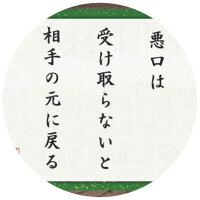 悪口は
受け取らないと
相手の元に戻る